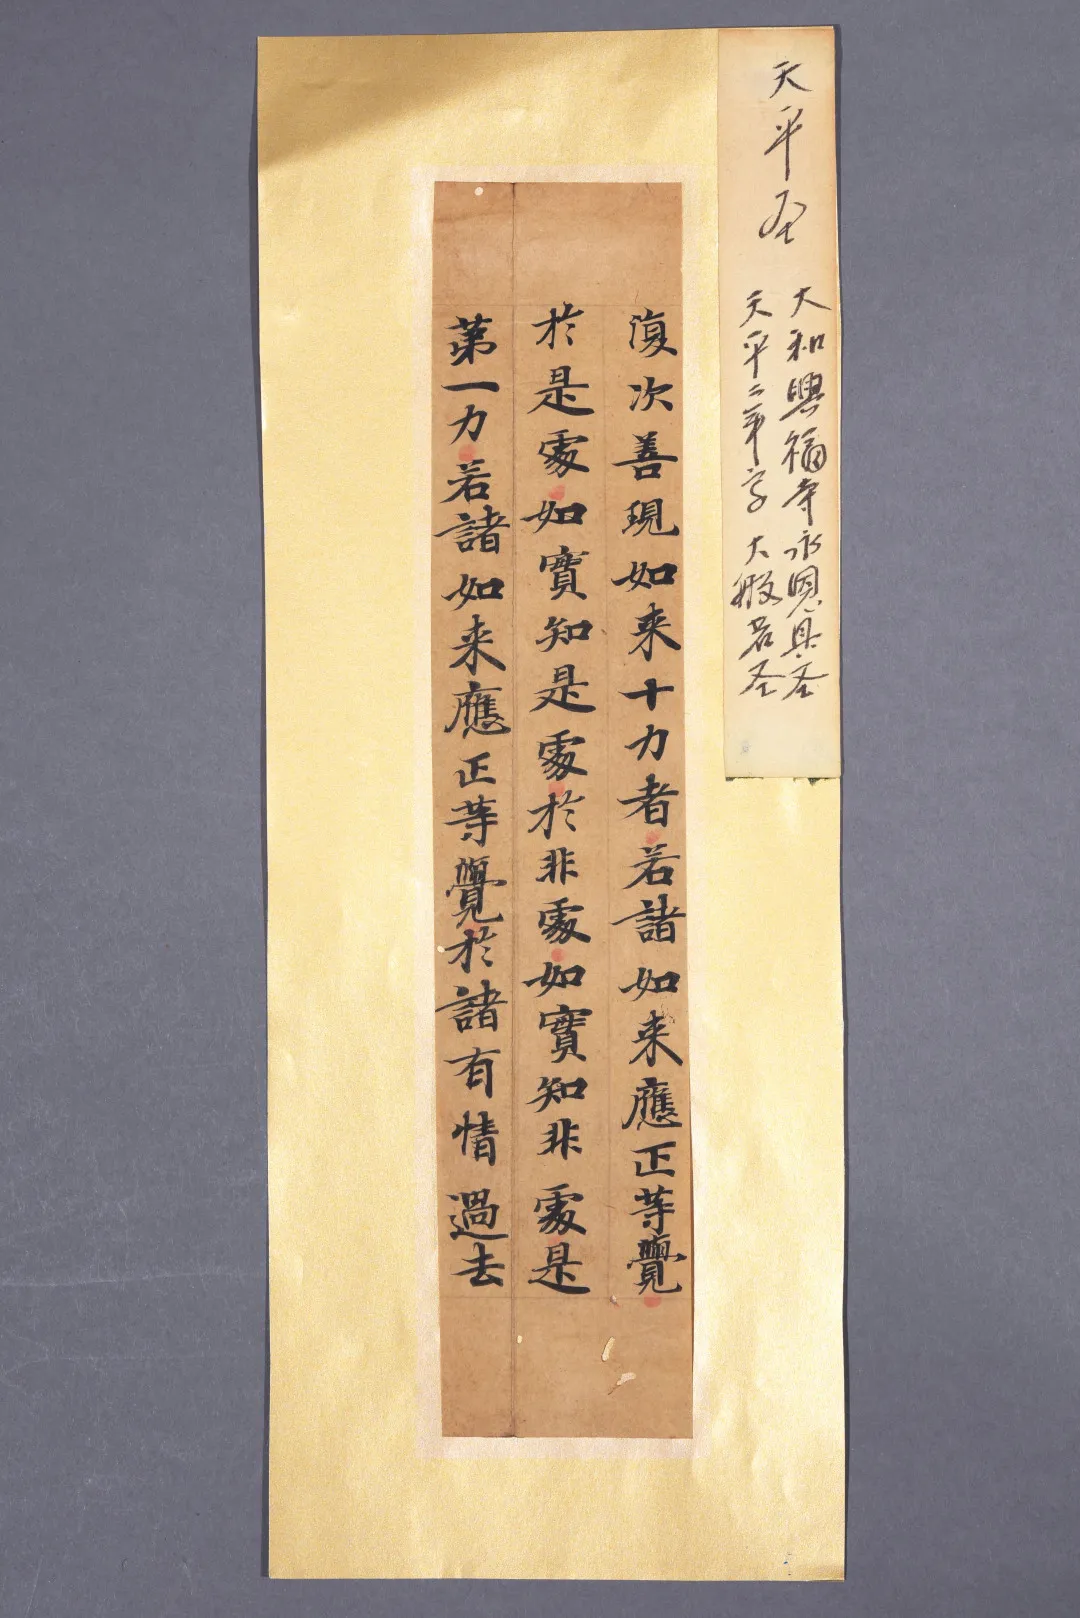 天平圣
大和興福寺永恩具圣
天平二年写 大般若圣
復次善現如来十力者若諸如来應正等覺
於是處如實知是處於非處如實知非處是
第一力若諸如来應正等覺於諸有情過去